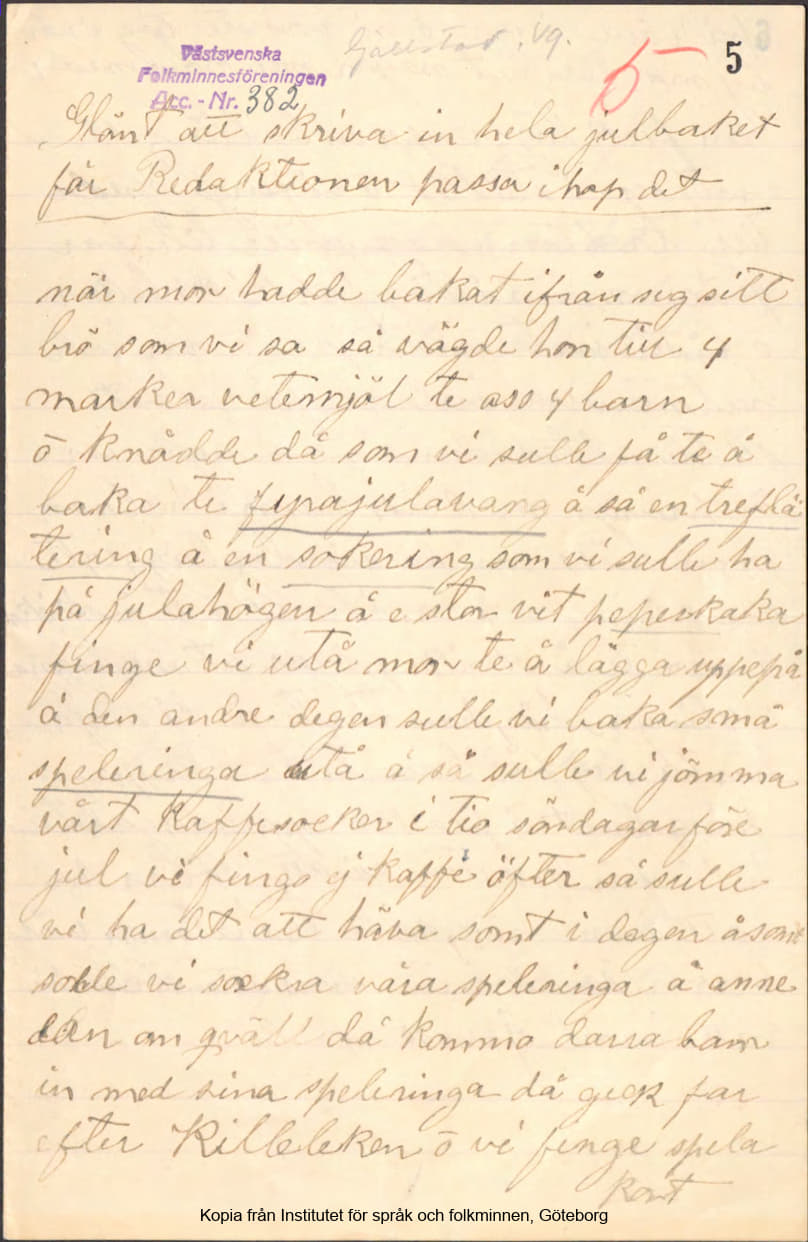 Gällstad. Vg.
5
5
Västsvenska
Folkminnesföreningen
Acc. - Nr. 382
Glömt att skriva in hela julbaket
får Redaktionen passa ihop det
när mor hadde bakat ifrån seg sitt
brö som vi sa så vägde hon till 4
marker vetemjöl te oss 4 barn
ö knådde då som vi sulle få te å
baka te fyrajulavarg å så en treflä
tering å en sokering som vi sulle ha
på julahögen å e stor vit peperkaka
finge vi utå mor te å lägga uppepå
å den andre degen sulle vi baka små
speleringa utå å så sulle vi jömma
vårt kaffesocker i tio söndagar före
jul vi fingo ej kaffe öfter så sulle
vi ha det att häva somt i degen å somt
solle vi sockra våra speleringa å anne
dan om qväll då kommo darra barn
in med sina speleringa då geck far
efter Killeleken ö vi finge spela
kort
Kopia från Institutet för språk och folkminnen, Göteborg